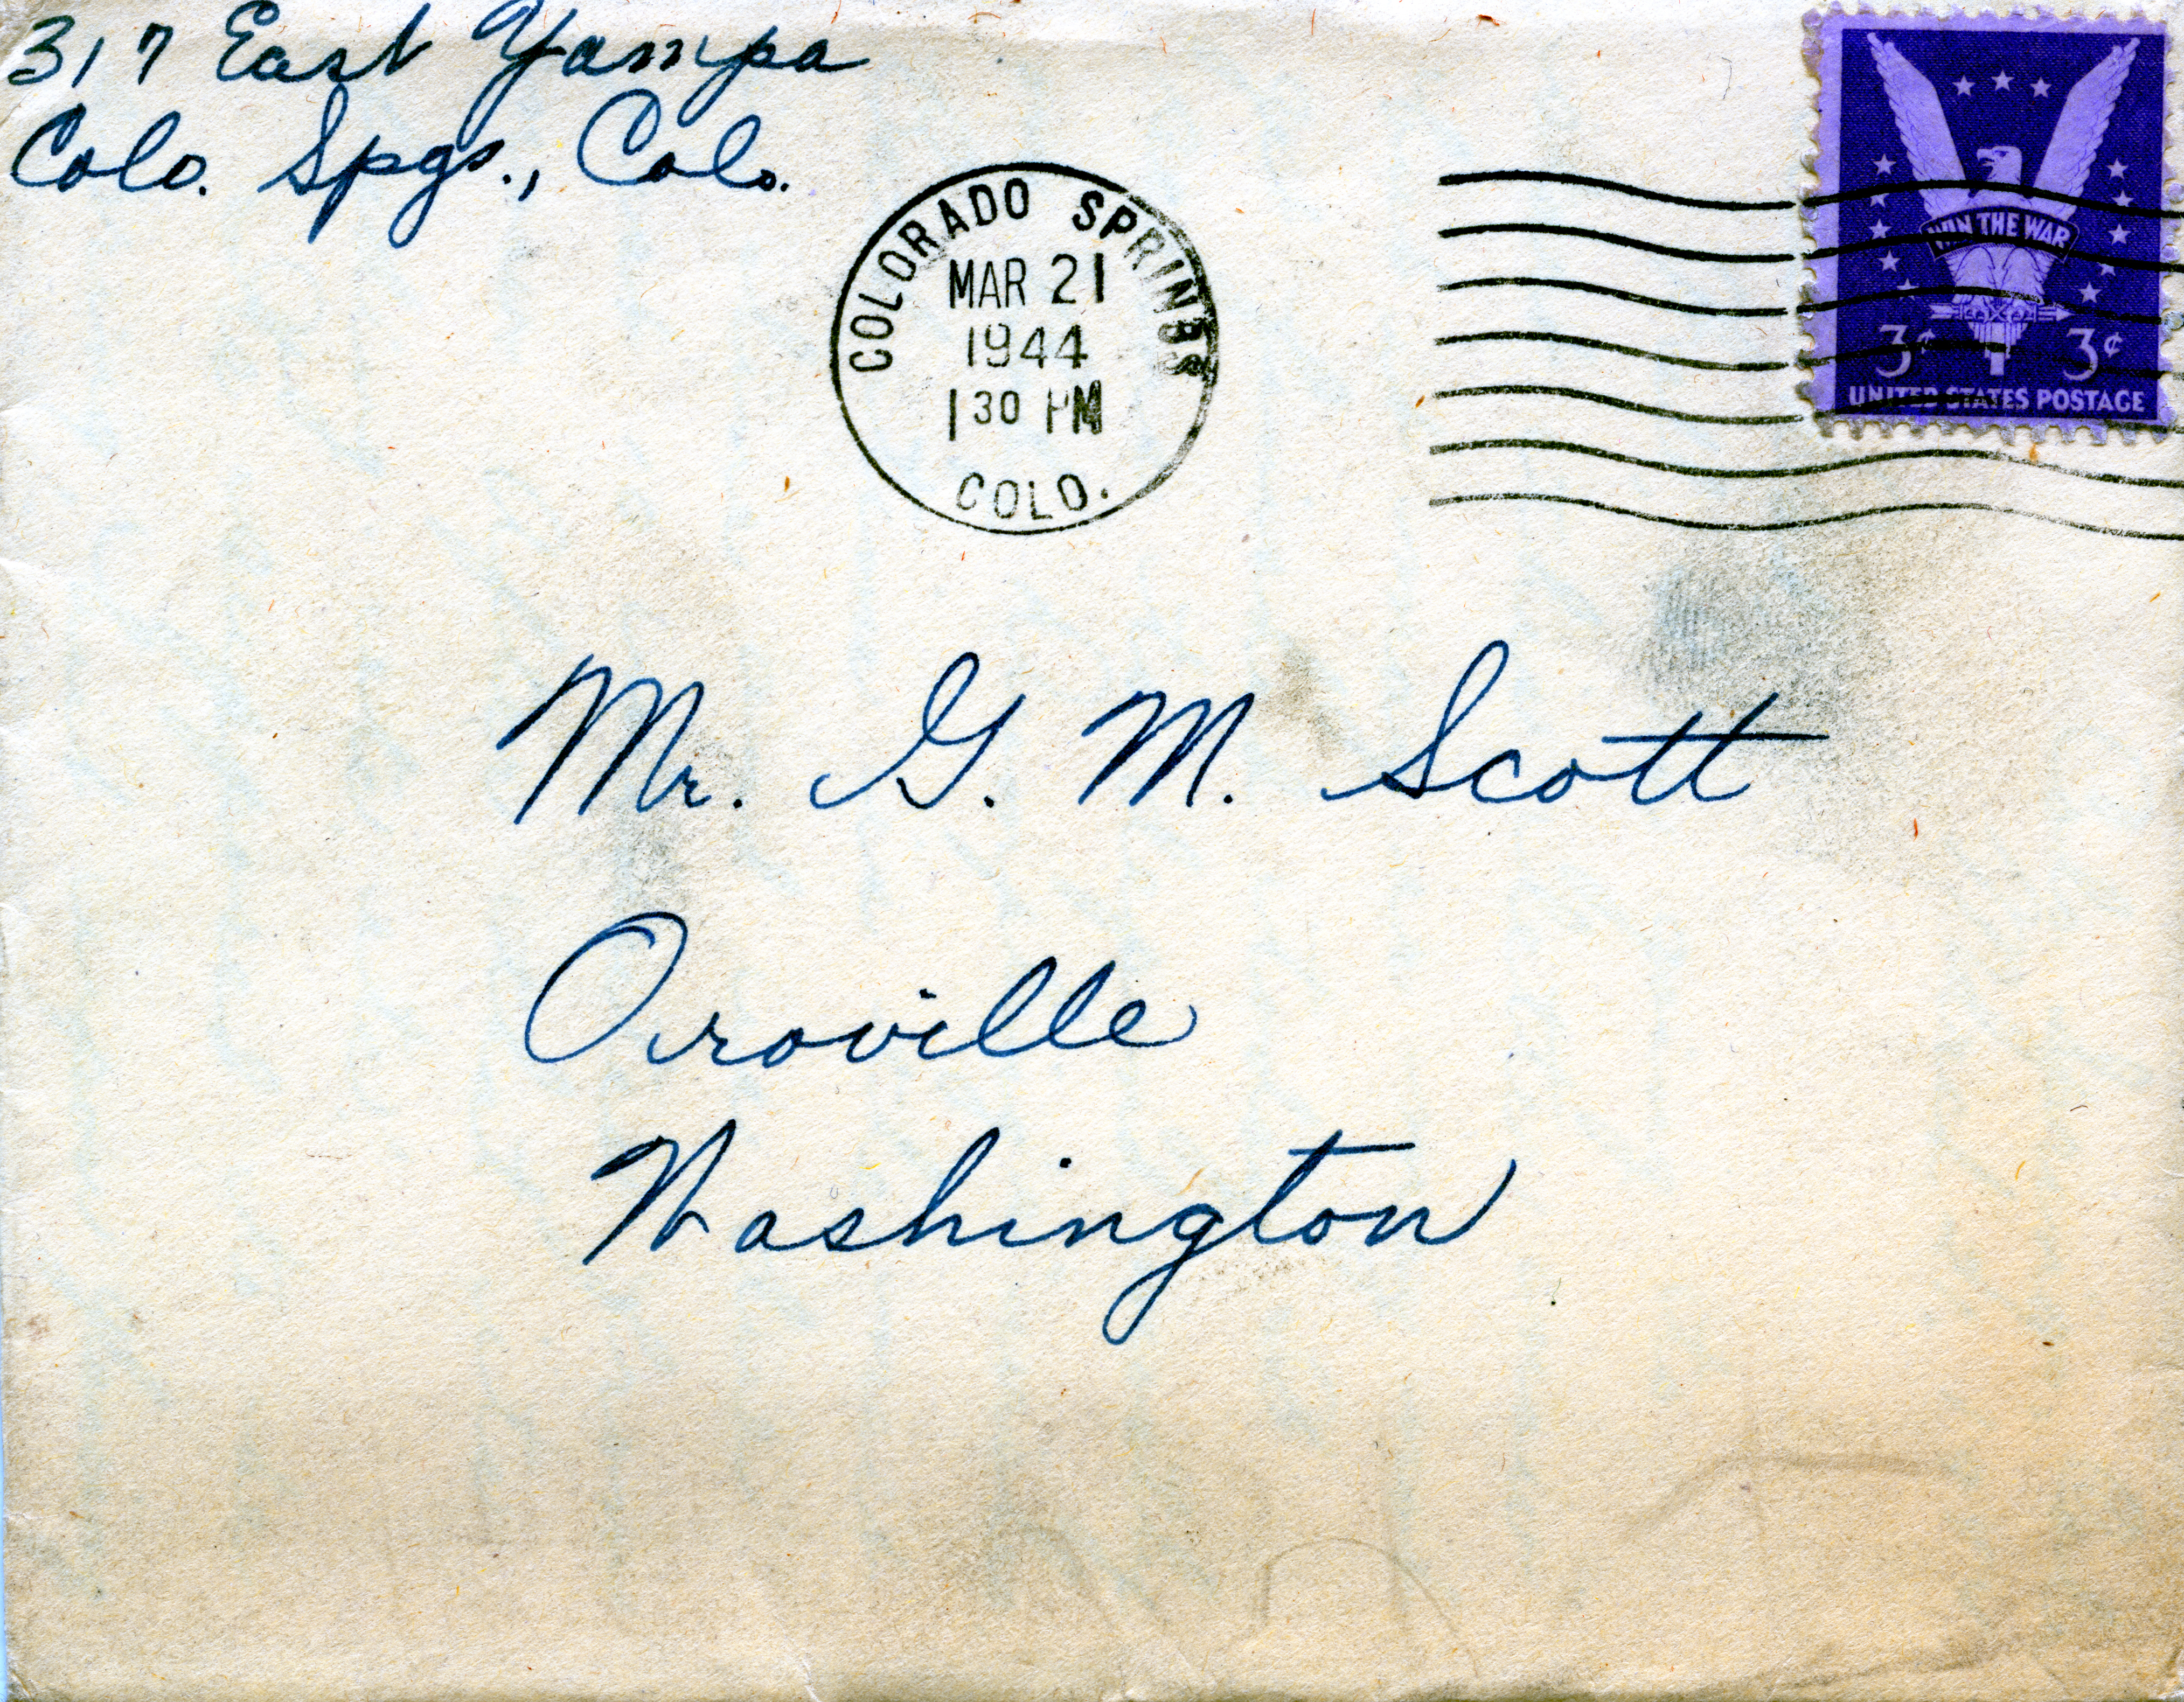 317 East Yampa
Colo. Spgs., Colo.
COLORADO SPRINGS
MAR 21
1944
1 30 PM
COLO.
WIN THE WAR
3¢ 3¢
UNITED STATES POSTAGE
Mr. G. M. Scott
Oroville
Washington